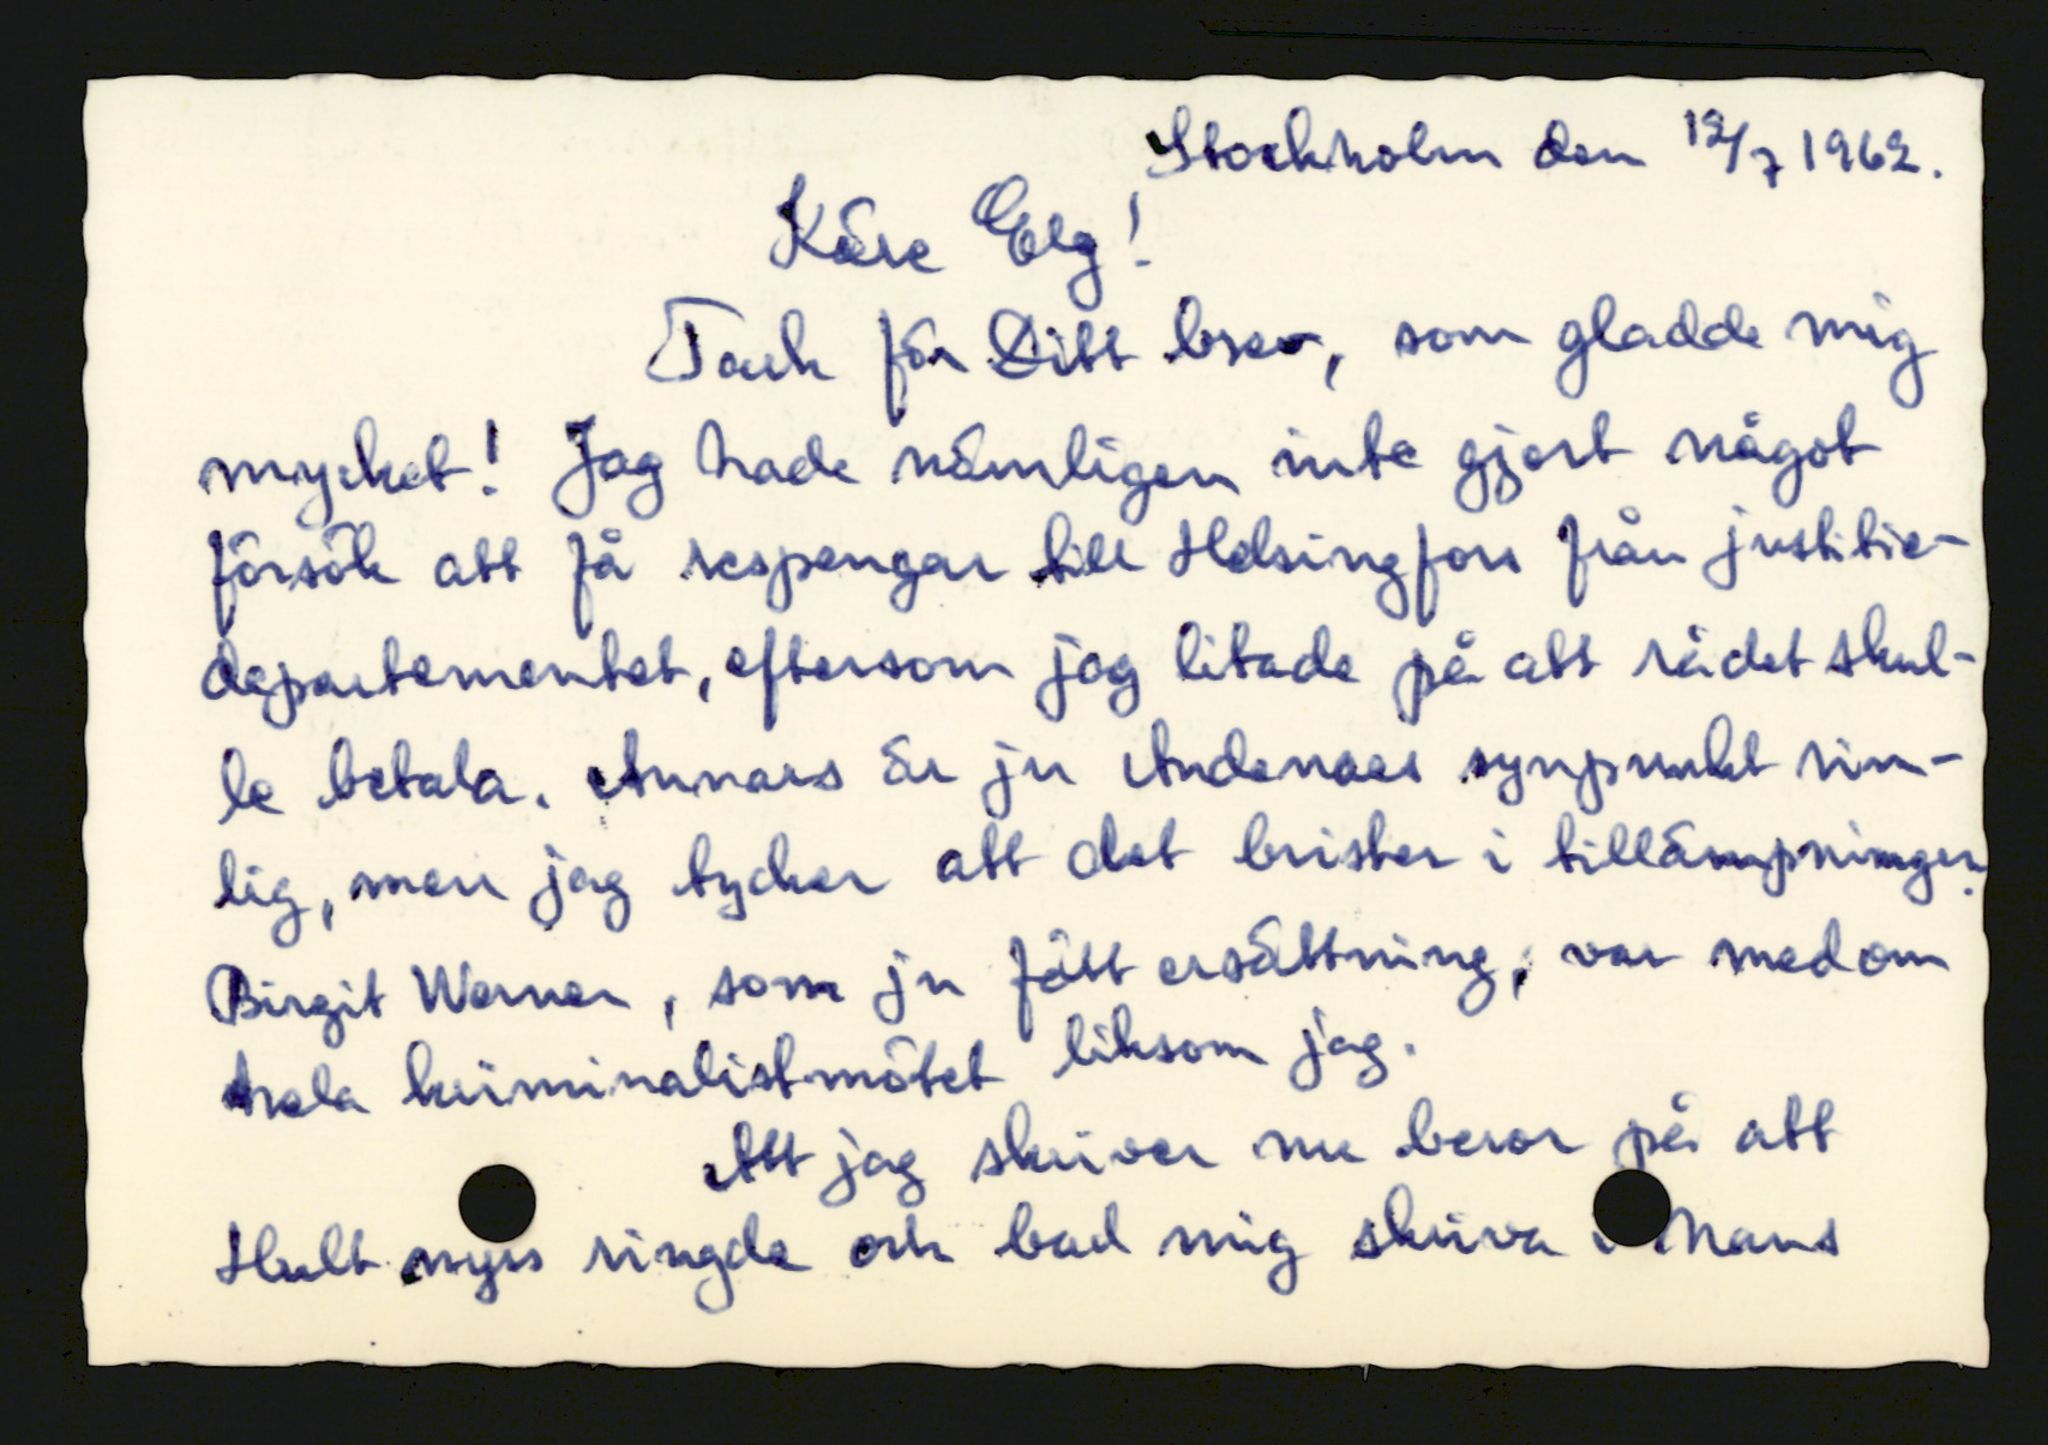 Stockholm den 12/7 1962.
Käre Elg!
Tack för Ditt brev, som gladde mig
mycket! Jag hade nämligen inte gjort något
försök att få respengar till Helsingfors från justitie-
departementet, eftersom jag litade på att rådet skul-
le betala. Annars är ju Andenaes synpunkt rim-
lig, men jag tycker att det brister i tillämpningen.
Birgit Werner, som ju fått ersättning, var med om
hela kriminalistmötet liksom jag.
Att jag skriver nu beror på att
Hult nyss ringde och bad mig skriva i hans